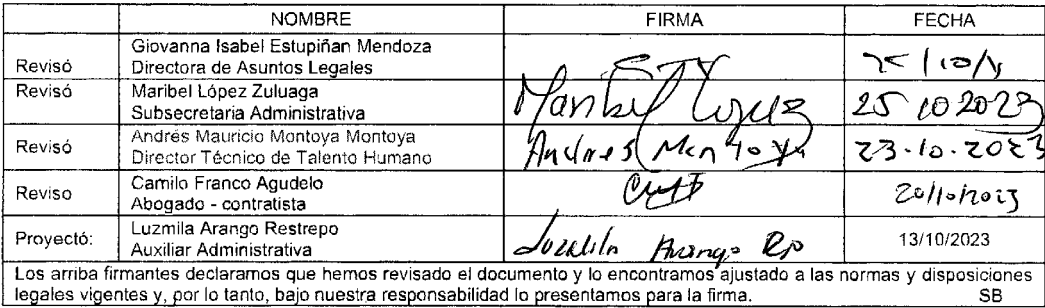 NOMBRE FIRMA FECHA
Giovanna Isabel Estupiñan Mendoza
Revisó Directora de Asuntos Legales
Revisó Maribel López Zuluaga Maribel López 25 10 2023
Subsecretaria Administrativa
Andrés Mauricio Montoya Montoya
Revisó Director Técnico de Talento Humano Andres Montoya 23.10.2023
Camilo Franco Agudelo
Reviso Abogado - contratista 20/10/2023
Luzmila Arango Restrepo
Proyectó: Auxiliar Administrativa Luzmila Arango Rpo 13/10/2023
Los arriba firmantes declaramos que hemos revisado el documento y lo encontramos ajustado a las normas y disposiciones
legales vigentes y, por lo tanto, bajo nuestra responsabilidad lo presentamos para la firma. SB